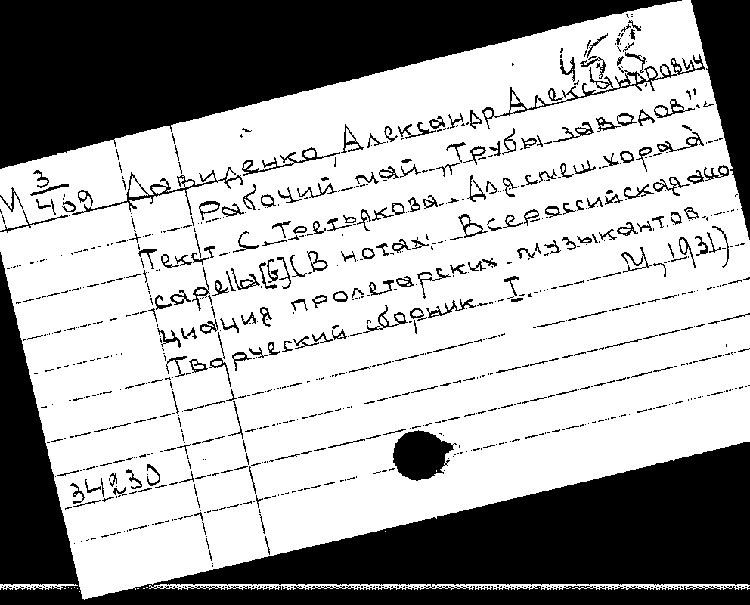 458
М 3/469
Давиденко, Александр Александрович
Рабочий май „Трубы заводов".
Текст С. Третьякова. Для смеш. хора а
capella [G] (В нотах: Всероссийская ассо-
циация пролетарских музыкантов.
Творческий сборник I. М., 1931)
34230